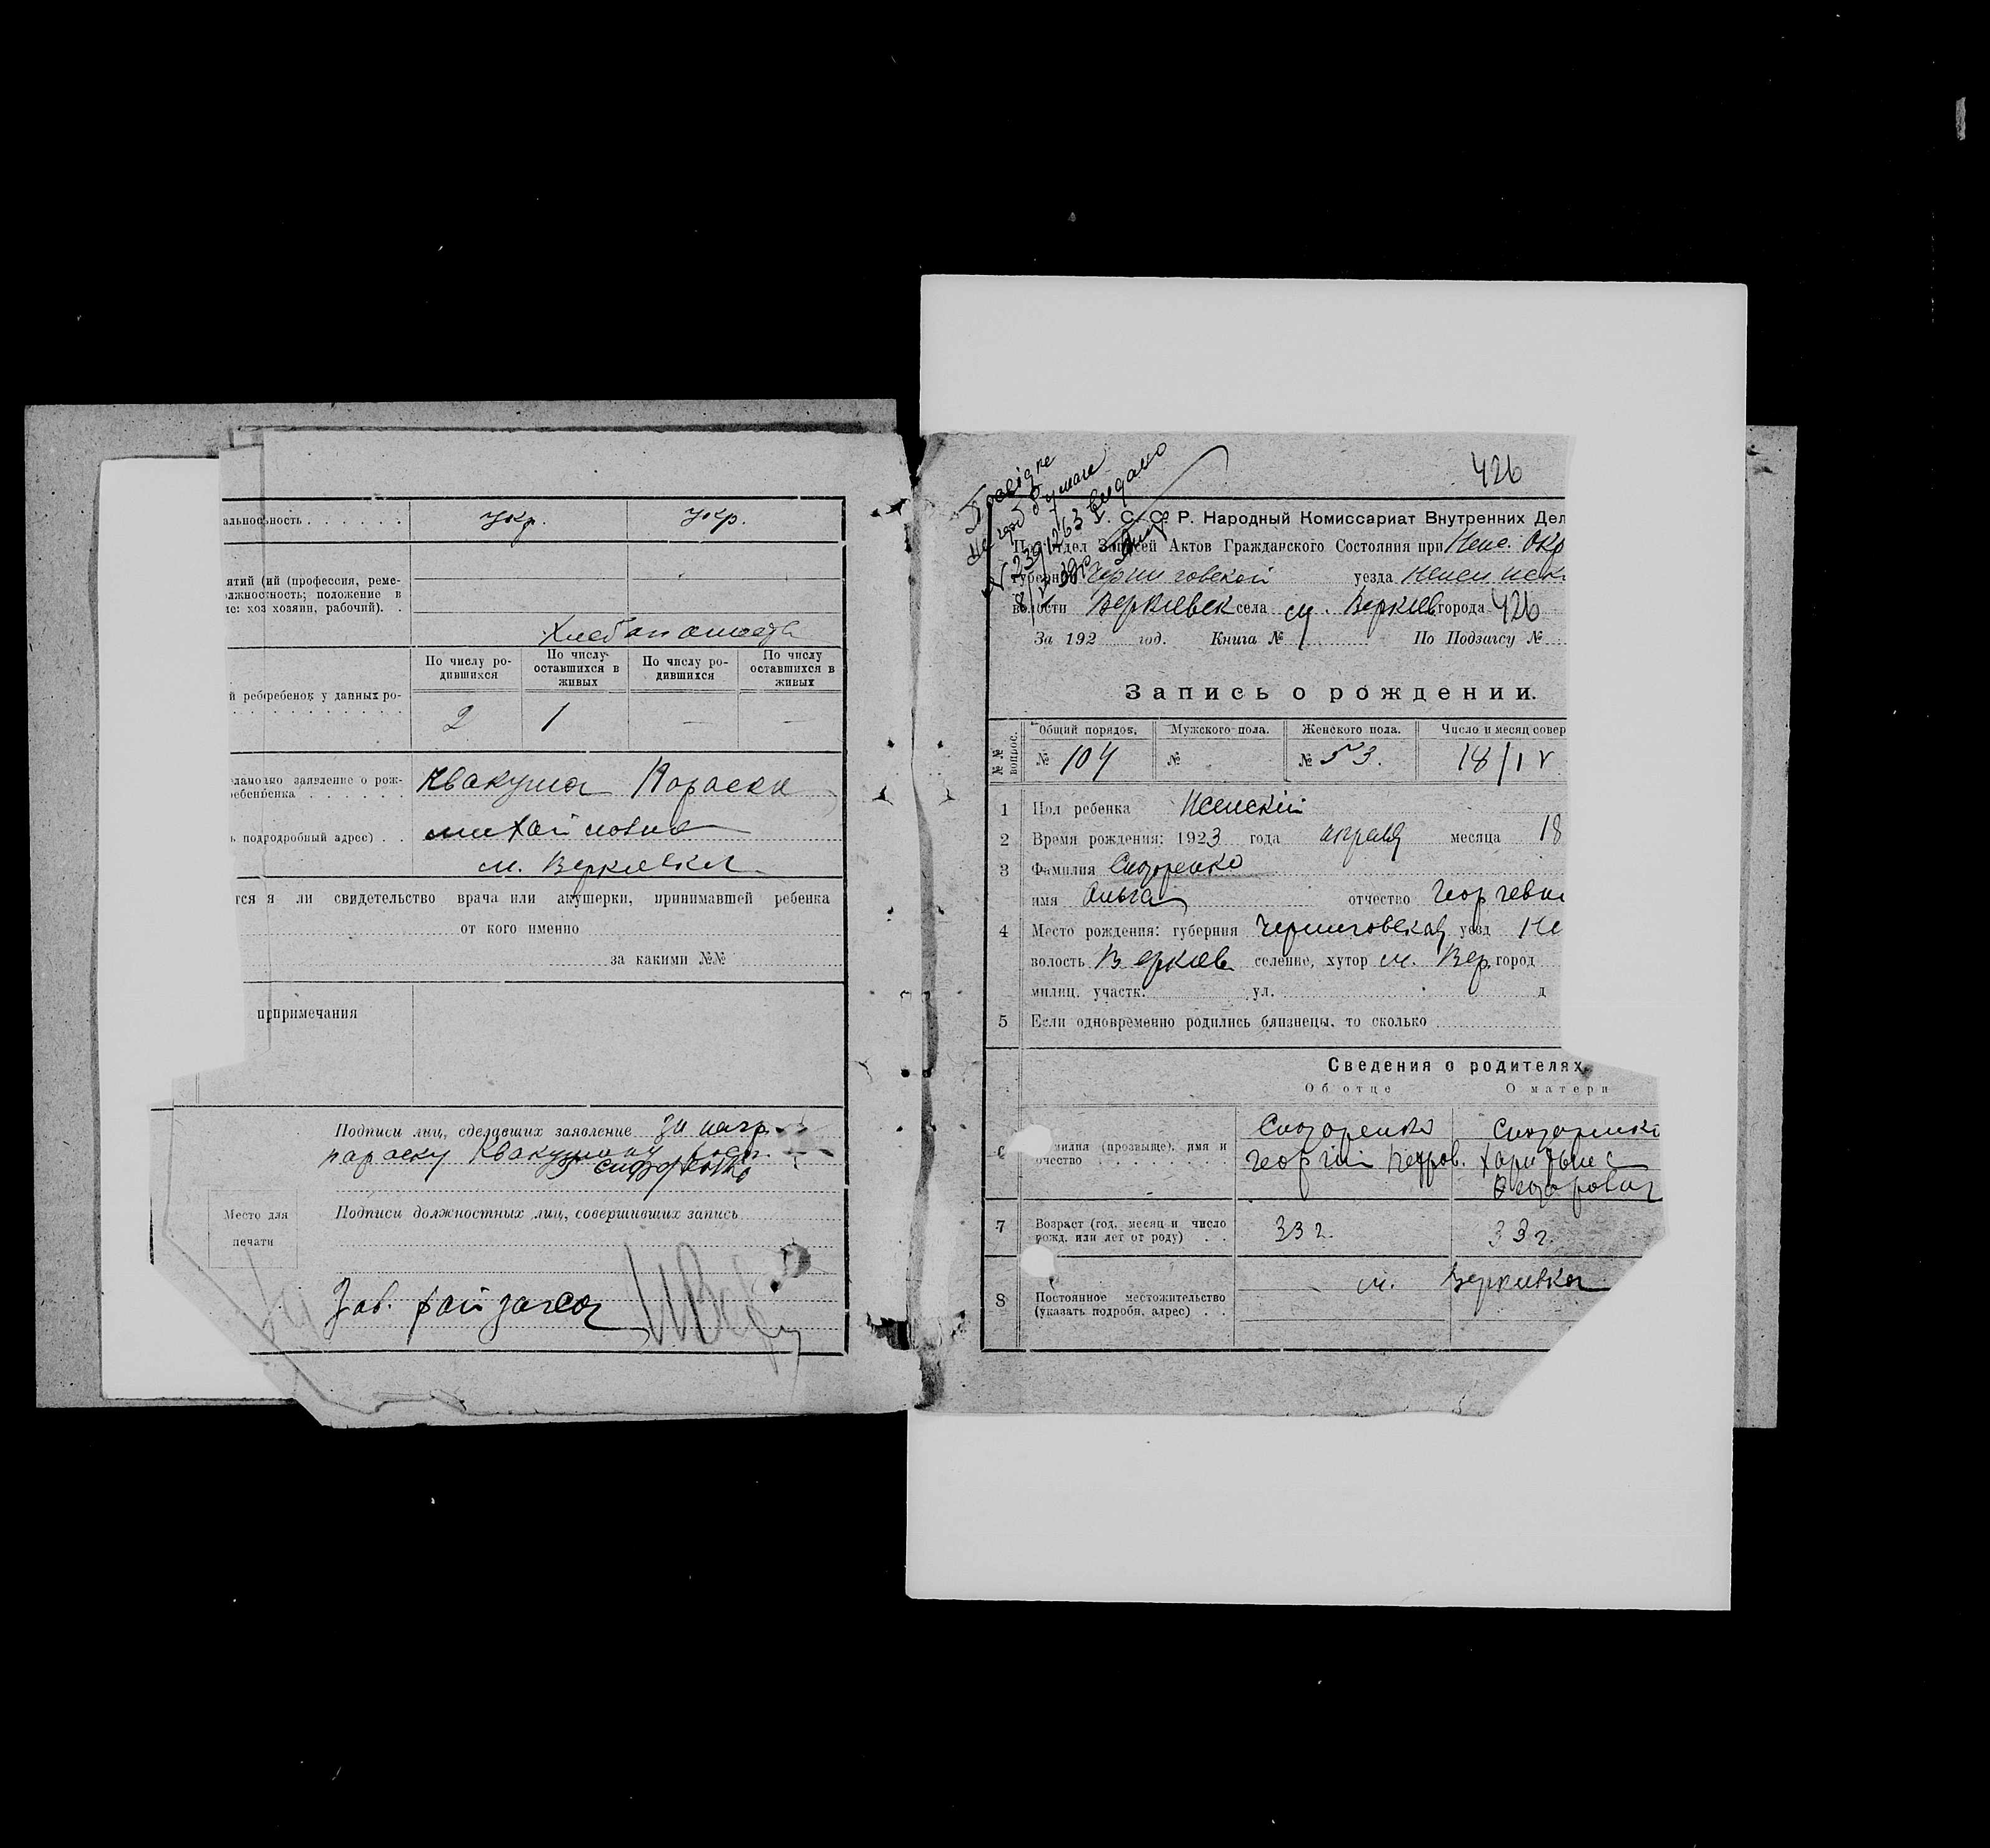 альность . . . . . . укр. укр.
ятий (ий (профессия, реме-
лжносность; положение в
ие: хоз хозяин, рабочий). .
По числу ро-
дившихся
По числу
оставшихся в
живых
По числу ро-
дившихся
По числу
оставшихся в
живых
й ребребенок у данных ро-
2 1 — —
заявление о рож-
Квакуша Параска
ь подгодробный адрес) . . михайловна
м. Веркиевка
тся я ли свидетельство врача или акушерки, принимавшей ребенка
от кого именно
за какими №№
прпримечания
Подписи лиц, сделавших заявление за негр.
параску Квакушу
Сидоренко
Подписи должностных лиц, совершивших запись
Место для
печати
Зав. райзагса
426
С. С. Р. Народный Комиссариат Внутренних Дел
Записей Актов Гражданского Состояния при Неж. Окр
Черниговской уезда Нежинск
волости Веркиевск села м. Веркиев города 426
За 192 год. Книга № По Подзагсу №
Запись о рождении.
№ №
вопрос.
Общий порядок. Мужского пола. Женского пола. Число и месяц совер
№ 104 № № 53. 18/IV
1 Пол ребенка Женский
2 Время рождения: 1923 года апреля месяца 18
3 Фамилия Сидоренко
имя Ольга отчество Георгевн
4 Место рождения: губерния Черниговская уезд Не
волость Веркиев селение, хутор м. Вер. город
милиц. участк. ул. д
5 Если одновременно родились близнецы, то сколько
Сведения о родителях
Об отце О матери
Сидоренко Сидоренко
6 милия (прозвище), имя и
отчество . . . . . . . Георгий Петров.
7 Возраст (год, месяц и число
рожд. или лет от роду) . . 33 г. 33 г.
м. Веркиевка
8 Постоянное местожительство
(указать подробн. адрес) . .